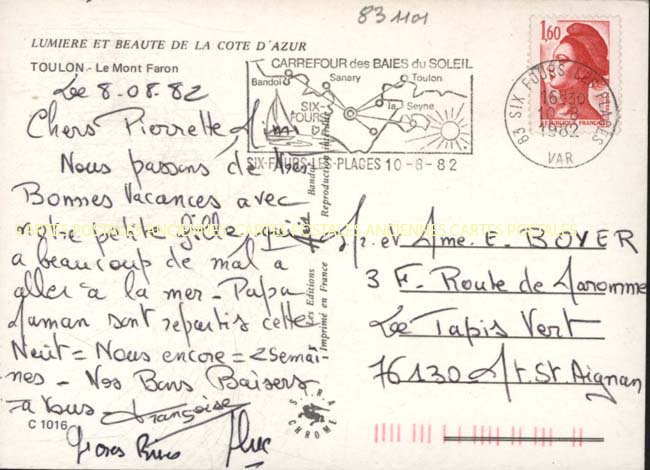 83 1101
LUMIERE ET BEAUTE DE LA COTE D'AZUR
TOULON - Le Mont Faron
CARREFOUR des BAIES du SOLEIL
Bandol
Sanary
Toulon
la Seyne
SIX-
FOURS
SIX-FOURS-LES-PLAGES 10-8-82
1,60
RÉPUBLIQUE FRANÇAISE
83 SIX FOURS LES PLAGES
16H30
10-8
1982
VAR
Le 8.08.82
Chers Pierrette
Nous passons de
Bonnes Vacances avec
notre petite fille
a beaucoup de mal a
aller a la mer - Papa
Maman sont repartis cette
Nuit = Nous encore = 2 semai-
nes - Nos Bons Baisers
a Vous Françoise
Gross Bises Luc
C 1016
Reproduction interdite
Les Editions
Imprimé en France
CHROME
CARTES POSTALES ANCIENNES CARTES POSTALES ANCIENNES CARTES POSTALES
Mr. et Mme. E. BOYER
3 F. Route de Maromme
Le Tapis Vert
76130 Mt. St. Aignan